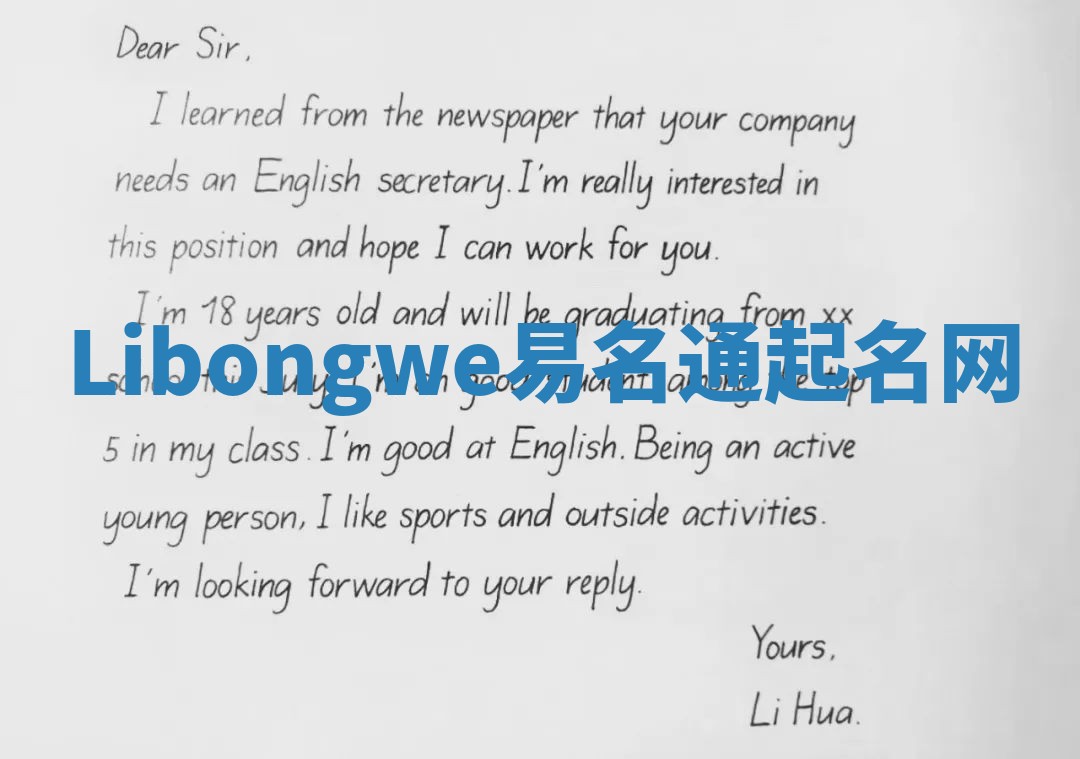 Dear Sir,
I learned from the newspaper that your company
needs an English secretary. I'm really interested in
this position and hope I can work for you.
I'm 18 years old and will be graduating from xx
Libongwe易名通起名网
July. I'm good student among the top
5 in my class. I'm good at English. Being an active
young person, I like sports and outside activities.
I'm looking forward to your reply.
Yours,
Li Hua.